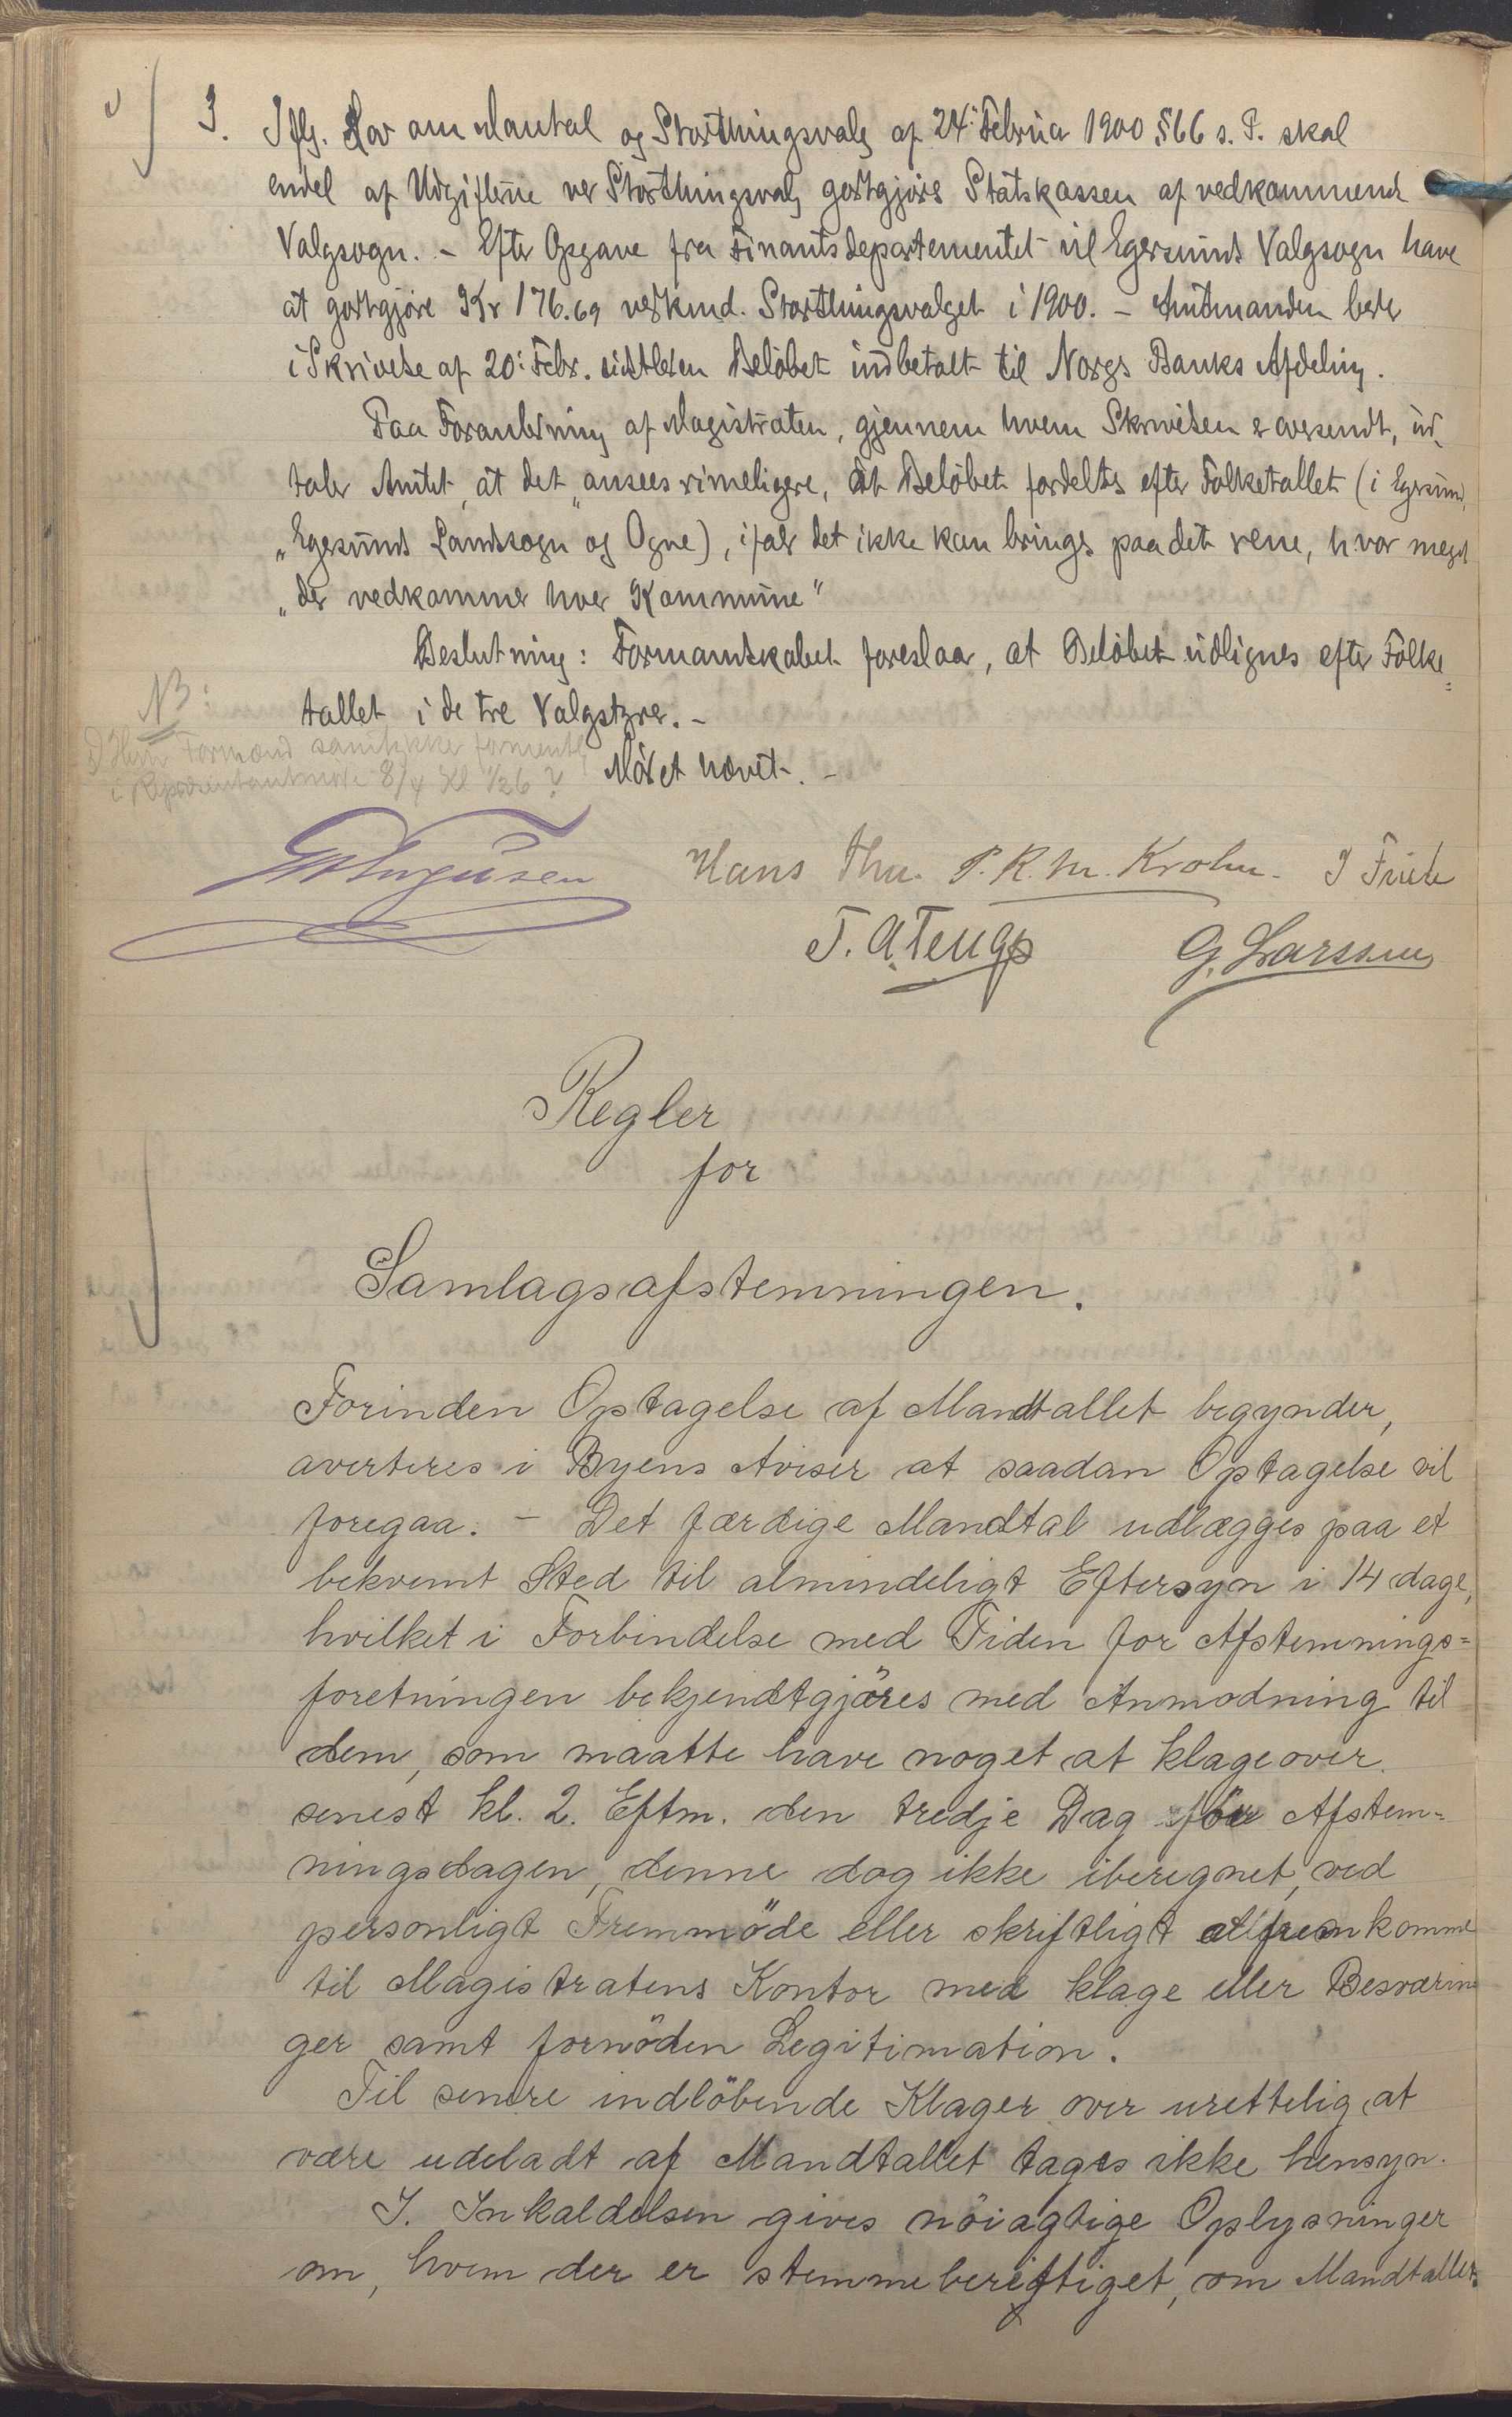 3. Iflg. Lov om Mantal og Storthingsvalg af 24' Februa 1900 § 66 s. P. skal
endel af Udgifterne ved Storthingsvalg godtgjøres Statskassen af vedkommende
Valgsogn. – Efter Opgave fra Finantsdepartementet vil Egersunds Valgsogn have
at godtgjøre Kr 176.69 vedkmd. Storthingsvalget i 1900. – Amtmanden beder
i Skrivelse af 20' Febr. sidstleden Beløbet indbetalt til Norges Banks Afdeling.
Paa Foranledning af Magistraten, gjennem hvem Skrivelsen er oversendt, ud-
taler Amtet, at det „ansees rimeligere, at Beløbet fordeltes efter Folketallet (i Egersund,
„Egersunds Landsogn og Ogne), ifald det ikke kan bringes paa det rene, hvor meget
„der vedkommer hver Kommune"
Beslutning: Formandskabet foreslaar, at Beløbet udlignes efter Folke=
tallet i de tre Valgstyrer. –
NB:
Formænd samtykke
i Repræsentantmøde 8/4
Mødet hævet. –
Hans Thu. P. R. M. Krohn. J Friede
T. A. Tengs G. Larssen
Regler
for
Samlagsafstemningen.
Forinden Optagelse af Mandtallet begynder,
averteres i Byens Aviser at saadan Optagelse vil
foregaa. – Det færdige Mandtal udlægges paa et
bekvemt Sted til almindeligt Eftersyn i 14 dage,
hvilket i Forbindelse med Tiden for Afstemnings=
foretningen bekjendtgjöres med Anmodning til
dem, som maatte have noget at klage over.
senest kl. 2. Eftm. den tredje Dag för Afstem=
ningsdagen, denne dog ikke iberegnet, ved
personligt Fremmöde eller skriftligt at fremkomme
til Magistratens Kontor med klage eller Besværin
ger samt fornöden Legitimation.
Til senere indlöbende Klager over urettelig at
være udeladt af Mandtallet tages ikke hensyn.
I. Inkaldelsen gives nöiagtige Oplysninger
om, hvem der er stemmeberettiget, om Mandtallets